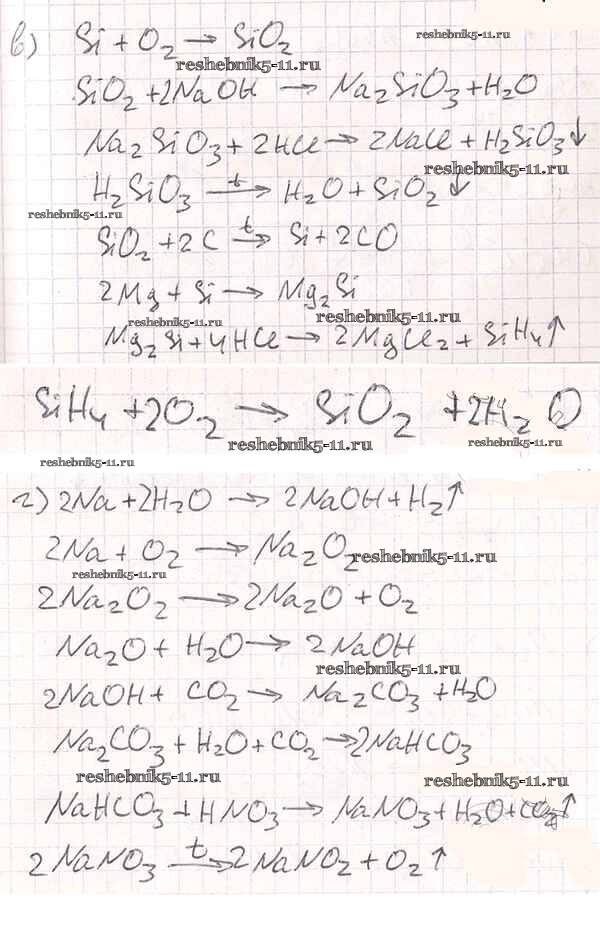 в) Si + O₂ → SiO₂
reshebnik5-11.ru
reshebnik5-11.ru
SiO₂ + 2NaOH → Na₂SiO₃ + H₂O
Na₂SiO₃ + 2HCl → 2NaCl + H₂SiO₃↓
reshebnik5-11.ru
H₂SiO₃ →t H₂O + SiO₂↓
reshebnik5-11.ru
SiO₂ + 2C →t Si + 2CO
2Mg + Si → Mg₂Si
reshebnik5-11.ru
reshebnik5-11.ru
Mg₂Si + 4HCl → 2MgCl₂ + SiH₄↑
SiH₄ + 2O₂ → SiO₂ + 2H₂O
reshebnik5-11.ru
reshebnik5-11.ru
reshebnik5-11.ru
г) 2Na + 2H₂O → 2NaOH + H₂↑
2Na + O₂ → Na₂O₂
reshebnik5-11.ru
reshebnik5-11.ru
2Na₂O₂ → 2Na₂O + O₂
Na₂O + H₂O → 2NaOH
reshebnik5-11.ru
2NaOH + CO₂ → Na₂CO₃ + H₂O
Na₂CO₃ + H₂O + CO₂ → 2NaHCO₃
reshebnik5-11.ru
reshebnik5-11.ru
NaHCO₃ + HNO₃ → NaNO₃ + H₂O + CO₂↑
2NaNO₃ →t 2NaNO₂ + O₂↑